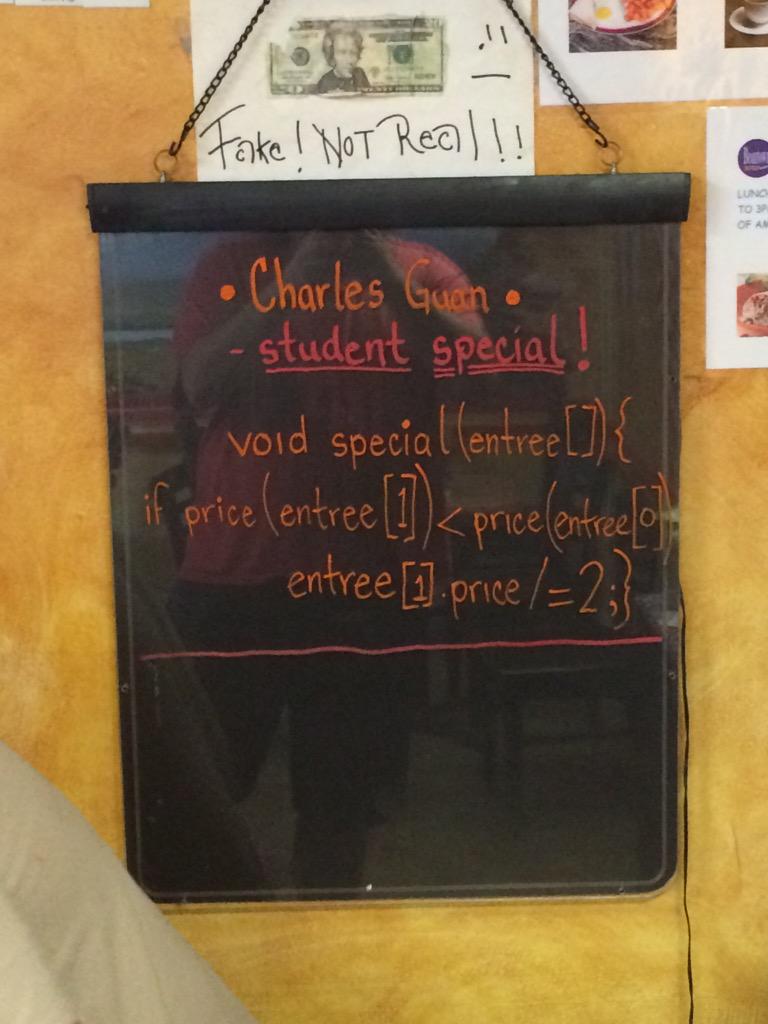 Fake! NOT Real!!!
• Charles Guan •
- student special!
void special(entree[]){
if price(entree[1])<price(entree[0])
entree[1].price/=2;}
LUNC
TO 3P
OF AM